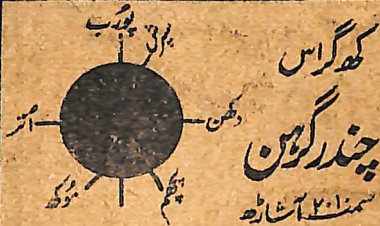 کھگراس
چندر گرہن
سمت ۲۰۱۰ آشاڑھ
پُورب
دکھن
پچھم
موکھ
اتر